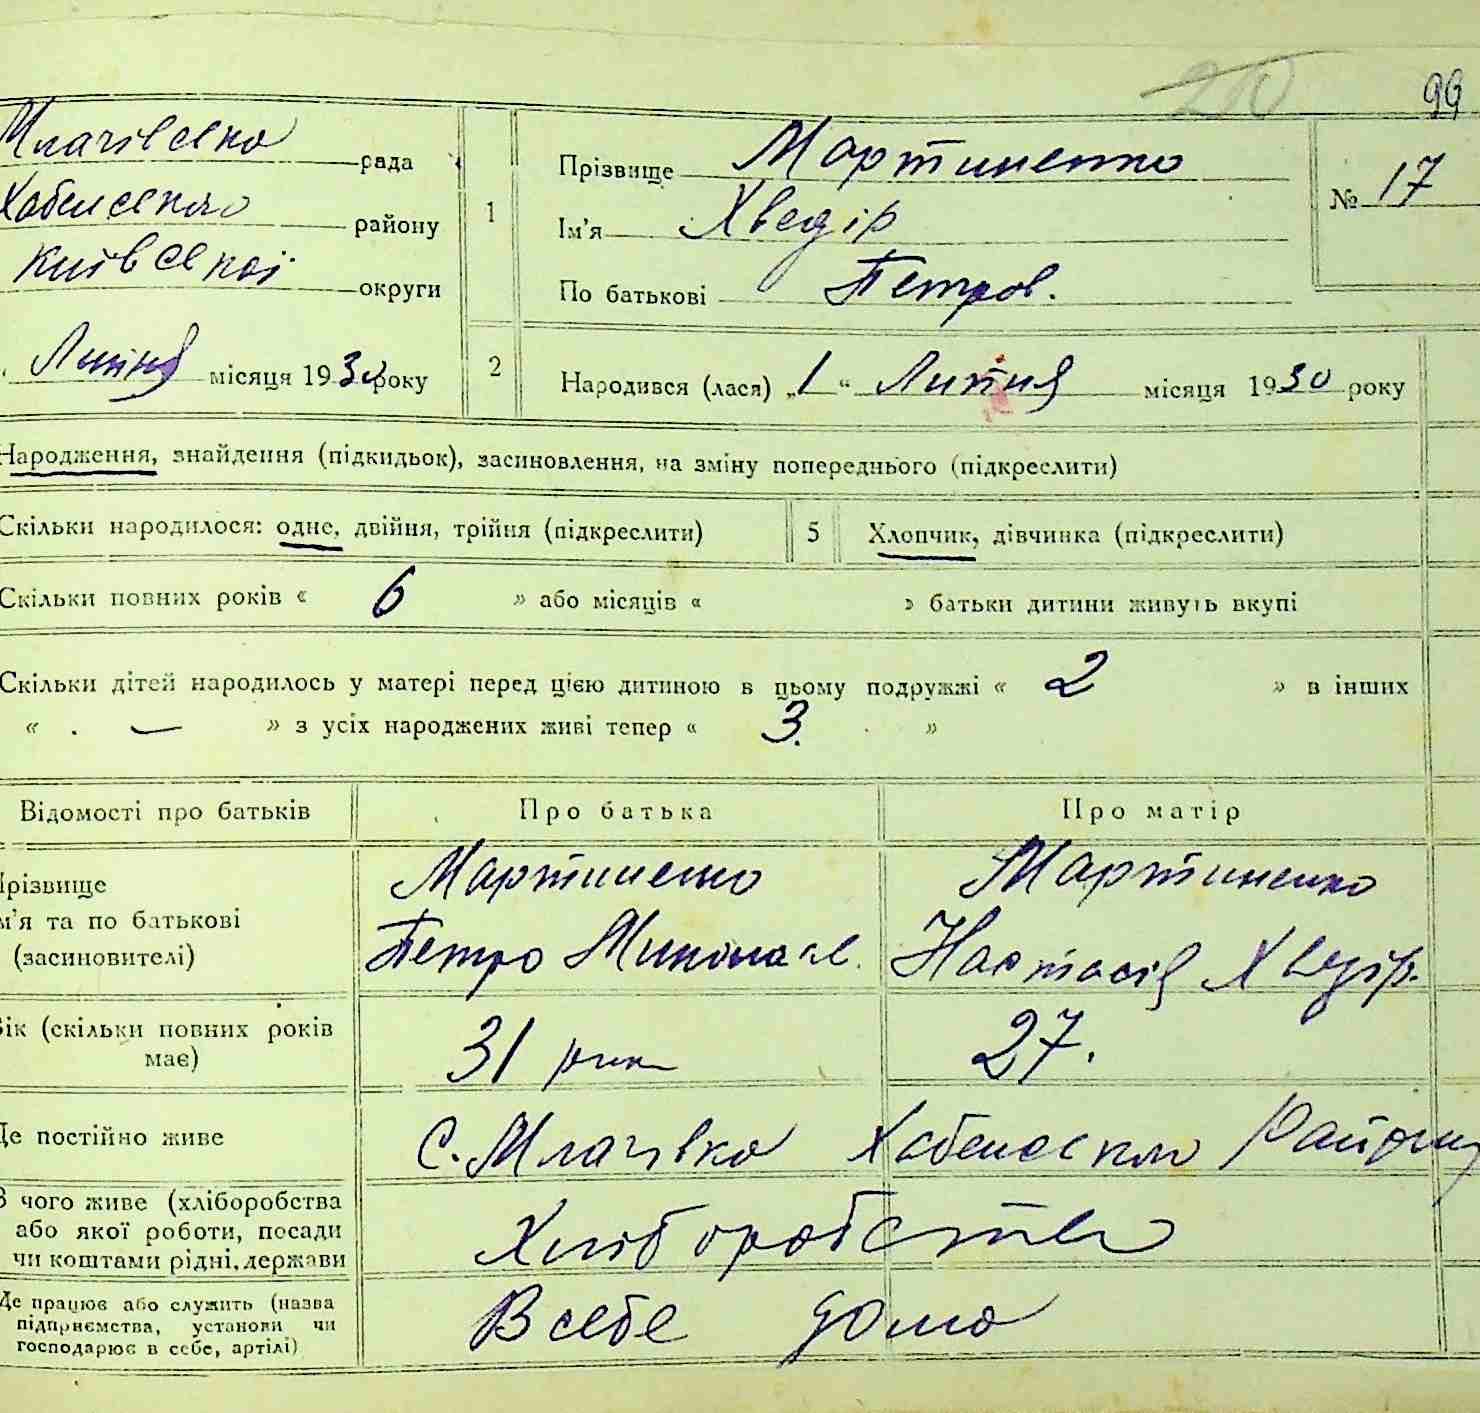 210 99
Млачівська рада
Хабенського району
Київської округи
Липня місяця 1930 року
1 Прізвище Мартиненко
Ім'я Хведір
По батькові Петров.
№ 17
2 Народився (лася) „1“ Липня місяця 1930 року
Народження, знайдення (підкидьок), засиновлення, на зміну попереднього (підкреслити)
Скільки народилося: одне, двійня, трійня (підкреслити) 5 Хлопчик, дівчинка (підкреслити)
Скільки повних років « 6 » або місяців « » батьки дитини живуть вкупі
Скільки дітей народилось у матері перед цією дитиною в цьому подружжі « 2 » в інших
« — » з усіх народжених живі тепер « 3. »
Відомості про батьків Про батька Про матір
Прізвище Мартиненко Мартиненко
м'я та по батькові Петро Микола Настасія Хведір.
(засиновителі)
Вік (скільки повних років має) 31 рик 27.
Де постійно живе С. Млачівка Хабенського Району
З чого живе (хліборобства Хліборобства
або якої роботи, посади
чи коштами рідні, держави
Де працює або служить (назва В себе дома
підприємства, установи чи
господарює в себе, артілі)